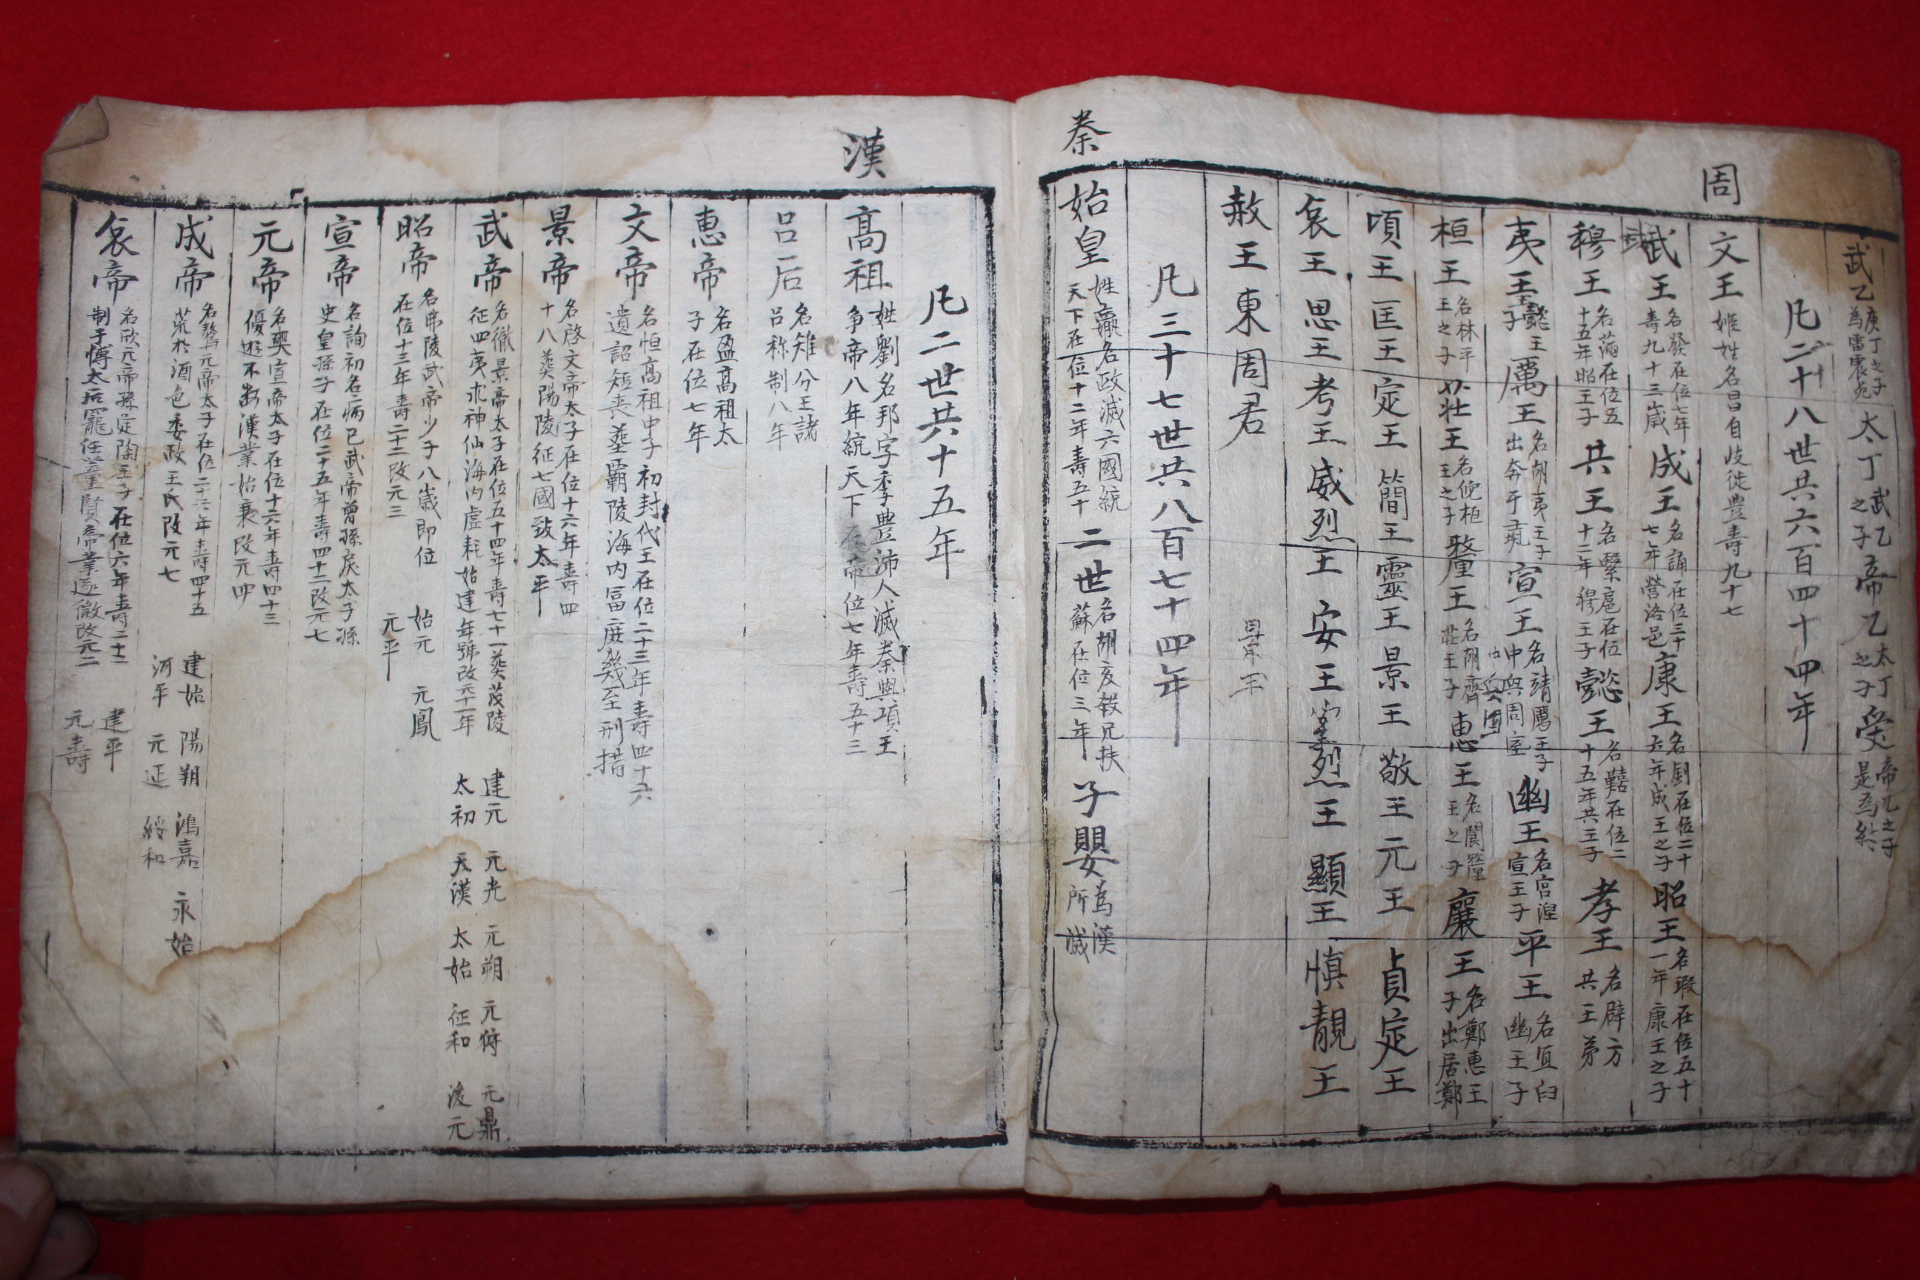 武乙庚丁之子為雷震死 太丁武乙之子 帝乙太丁之子 受帝乙之子是為紂
凡二十八世共六百四十四年
周
文王姬姓名昌自岐徙豊壽九十七
武王名發在位七年壽九十三歲 成王名誦在位三十七年營洛邑 康王名釗在位二十六年成王之子 昭王名瑕在位五十一年康王之子
穆王名滿在位五十五年昭王子 共王名繄扈在位十二年穆王子 懿王名囏在位二十五年共王子 孝王名辟方共王弟
夷王懿王子 厲王名胡夷王子出奔于彘 宣王名靖厲王子中興周室 幽王名宮湼宣王子 平王名宜臼幽王子
桓王名林平王之子 莊王名佗桓王之子 釐王名胡齊莊王子 惠王名閬釐王之子 襄王名鄭惠王子出居鄭
頃王 匡王 定王 簡王 靈王 景王 敬王 元王 貞定王
哀王 思王 考王 威烈王 安王 烈王 顯王 慎靚王
赧王 東周君
凡三十七世共八百七十四年
秦
始皇姓嬴名政滅六國統天下在位十二年壽五十 二世名胡亥殺兄扶蘇在位三年 子嬰為漢所滅
凡二世共十五年
漢
高祖姓劉名邦字季豊沛人滅秦與項王爭帝八年統天下在帝位七年壽五十三
呂后名雉分王諸呂称制八年
惠帝名盈高祖太子在位七年
文帝名恒高祖中子初封代王在位二十三年壽四十六遺詔短喪葬霸陵海内富庶幾至刑措
景帝名啓文帝太子在位十六年壽四十八葬陽陵征七國致太平
武帝名徹景帝太子在位五十四年壽七十一葬茂陵征四夷求神仙海内虛耗始建年號改元十一年 建元 元光 元朔 元狩 元鼎 太初 天漢 太始 征和 後元
昭帝名弗陵武帝少子八歲即位在位十三年壽二十二改元三 始元 元鳳 元平
宣帝名詢初名病已武帝曾孫戾太子孫史皇孫子在位二十五年壽四十二改元七
元帝名奭宣帝太子在位十六年壽四十三優遊不斷漢業始衰改元四
成帝名驁元帝太子在位二十六年壽四十五荒於酒色委政王氏改元七 建始 陽朔 鴻嘉 永始 河平 元延 綏和
哀帝名欣元帝孫定陶王子在位六年壽二十二制于傅太后寵任董賢帝業遂微改元二 建平 元壽